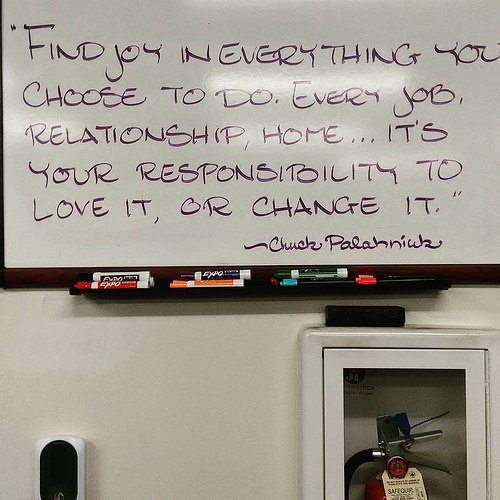 "FIND JOY IN EVERYTHING YOU
CHOOSE TO DO. EVERY JOB,
RELATIONSHIP, HOME... IT'S
YOUR RESPONSIBILITY TO
LOVE IT, OR CHANGE IT."
~Chuck Palahniuk
EXPO EXPO
EXPO
SAFEQUIP